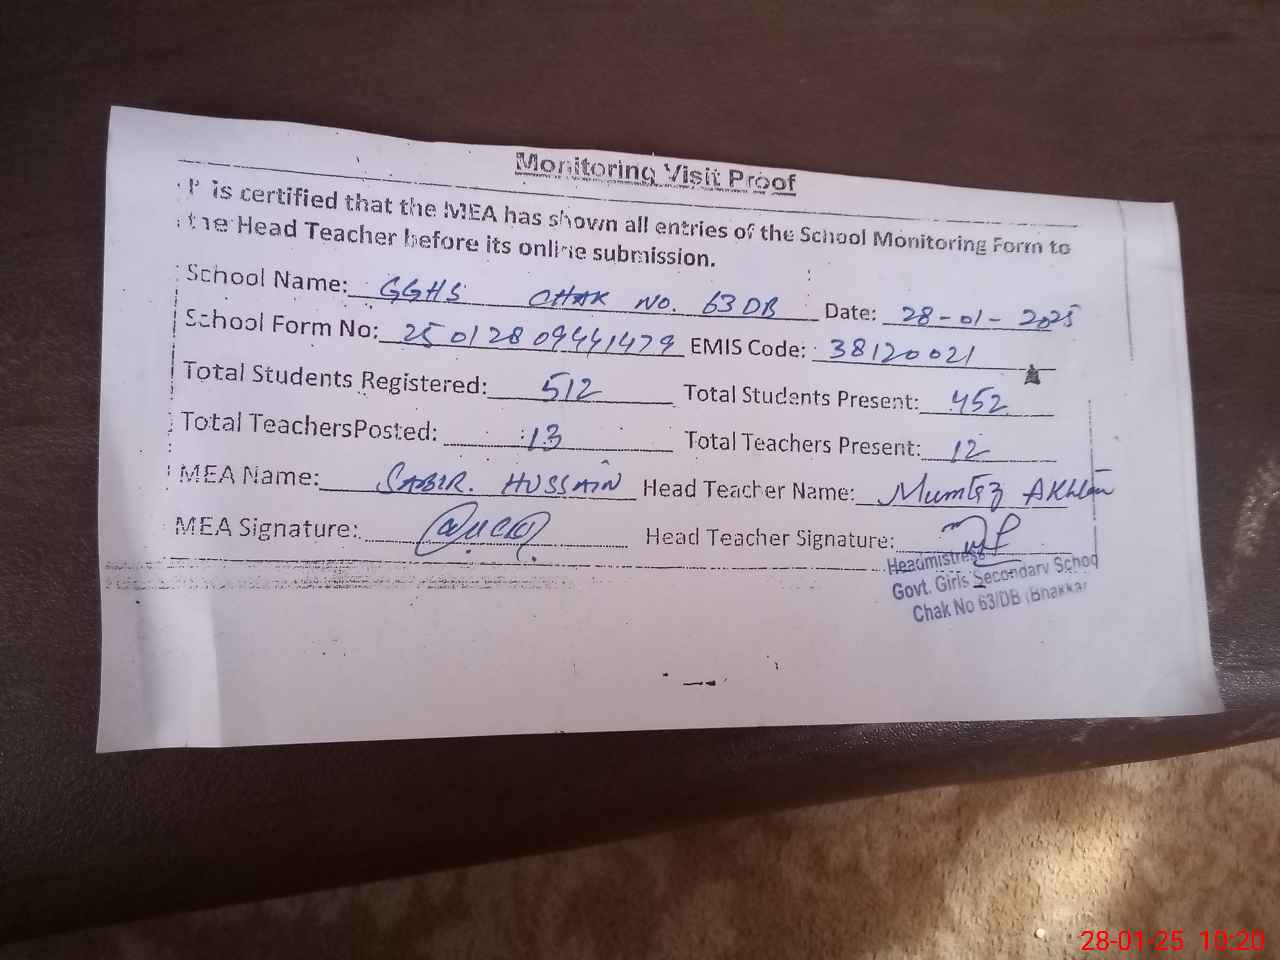 Monitoring Visit Proof
It is certified that the MEA has shown all entries of the School Monitoring Form to
the Head Teacher before its online submission.
School Name: GGHS CHAK NO. 63 DB Date: 28-01-2025
School Form No: 2501280944 1479 EMIS Code: 38120021
Total Students Registered: 512 Total Students Present: 452
Total TeachersPosted: 13 Total Teachers Present: 12
MEA Name: SABIR. HUSSAIN Head Teacher Name: Mumtaz Akhtar
MEA Signature: Head Teacher Signature:
Headmistress
Govt. Girls Secondary School
Chak No 63/DB (Bhakkar
28-01-25 10:20